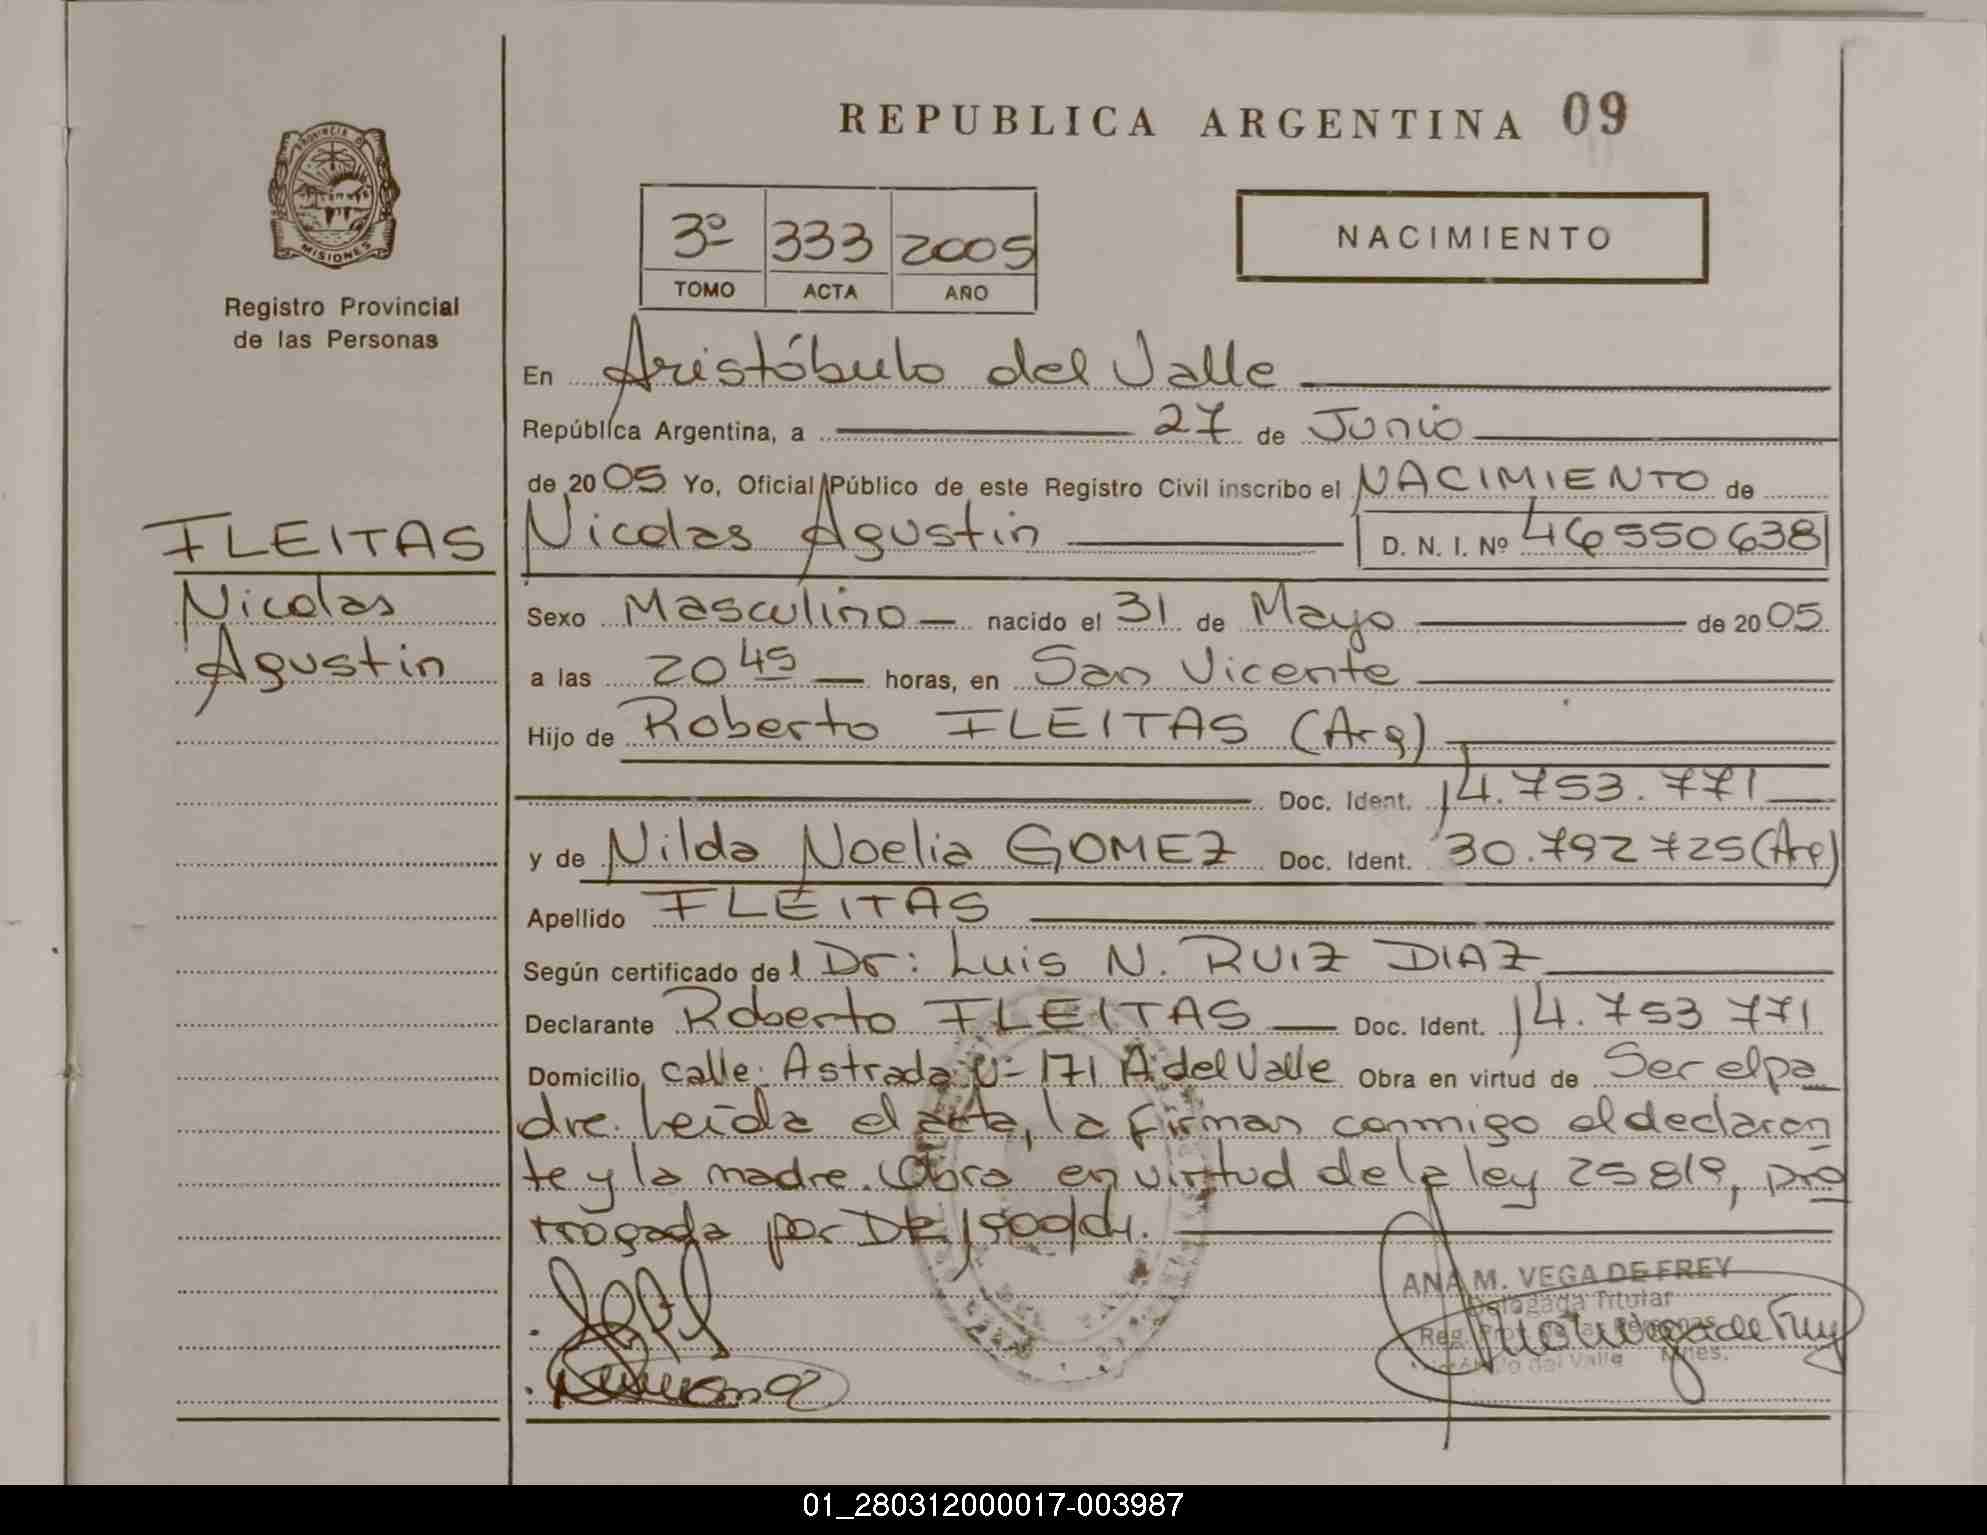 REPUBLICA ARGENTINA 09
PROVINCIA DE
MISIONES
Registro Provincial
de las Personas
3º 333 2005
TOMO ACTA AÑO
NACIMIENTO
En Aristóbulo del Valle
República Argentina, a 27 de Junio
de 2005 Yo, Oficial Público de este Registro Civil inscribo el NACIMIENTO de
FLEITAS
Nicolas
Agustin
Nicolas Agustin D. N. I. Nº 46550638
Sexo Masculino nacido el 31 de Mayo de 2005
a las 20 45 horas, en San Vicente
Hijo de Roberto FLEITAS (Arg)
Doc. Ident. 14.753.771
y de Nilda Noelia GOMEZ Doc. Ident. 30.792 725 (Arg)
Apellido FLEITAS
Según certificado del Dr: Luis N. RUIZ DIAZ
Declarante Roberto FLEITAS Doc. Ident. 14.753 771
Domicilio calle: Astrada 171 A del Valle Obra en virtud de Ser el pa
dre. Leída el acta, la firman conmigo el declaran
te y la madre. Obra en virtud de la ley 25819, pro
rrogada por
ANA M. VEGA DE FREY
Delegada Titular
01_280312000017-003987